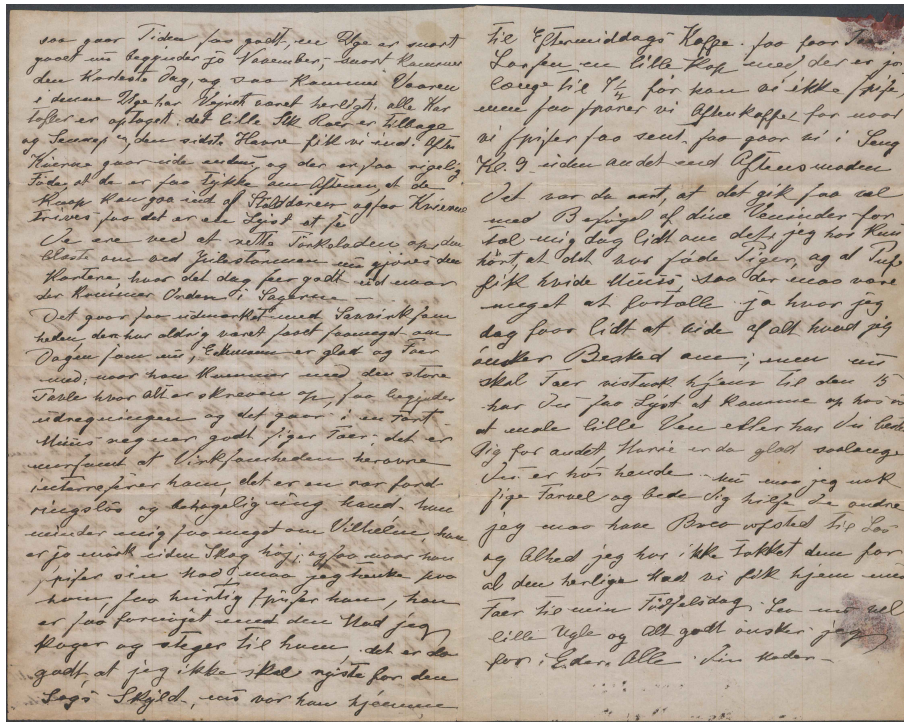 saa gaar Tiden saa godt, en Uge er snart
gaaet nu begynder jo November, snart kommer
den korteste Dag, og saa kommer Vaaren
i denne Uge har Vejret været herligt, alle Kar
tofler er optaget. det lille Stk Roer er tilbage
og Sennep, den sidste Havre fik vi ind. Aften
Kvierne gaar ude endnu, og der er saa rigelig
Føde, at de er saa tykke om Aftenen, at de
knap kan gaa ind af Stalddøren, ogsaa Kvierne
trives saa det er en Lyst at se
De ere ved at rette Törveladen op, den
blæste om ved
hvor det dog ser godt ud naar
der kommer Orden i Sagerne —
Det gaar saa udmærket med Savværk som
heden den har aldrig været savet saameget om
Dagen som nu, Ekmann er glad og Faer
med, naar han kommer med den store
Tavle hvor alt er skreven op, saa begynder
udregningen og det gaar i en Fart
Muus regner godt siger Faer, det er
morsomt at Virksomheden herovre
interreserer ham, det er en rar ford
ringsløs og behagelig ung Mand. han
minder mig saa meget om Vilhelm, han
er jo mørk uden Skæg høj, ogsaa naar han
spiser sin Mad, maa jeg tænke paa
ham, saa hurtig spiser han, han
er saa fornøjet med den Mad jeg
koger og steger til ham. det er da
godt, at jeg ikke skal nøjste for den
Sags Skyld, nu var han hjemme
til Eftermiddags Kaffe. saa faar
Larsen en lille Kop med, der er jo
længe til 7¼ før kan vi ikke spise,
men saa sparer vi Aftenkaffe, for naar
vi spiser saa sent, saa gaar vi i Seng
Kl. 9. uden andet end Aftensmaden
Det var da rart, at det gik saa vel
med Besøget af dine Veninder for
tæl mig dog lidt om det, jeg har kun
hørt, at det var søde Piger, og at Puf
fik hvide Muus, saa der maa være
meget at fortælle. ja hvor jeg
dog faar lidt at vide af alt hvad jeg
ønsker Besked om; men nu
skal Faer vistnok hjem til den 15
har Du saa Lyst at komme op hos os
at male lille Ven eller har Du bestemt
Dig for andet, Marie er da glad saalænge
Du er hos hende. nu maa jeg nok
sige Farvel og bede Dig hilse de andre
jeg maa have Brev afsted til Las
og Alhed jeg har ikke takket dem for
al den herlige Mad vi fik hjem med
Faer til min Födselsdag. Lev nu vel
lille Ugle og alt godt ønsker jeg
for Eder Alle. Din Moder —